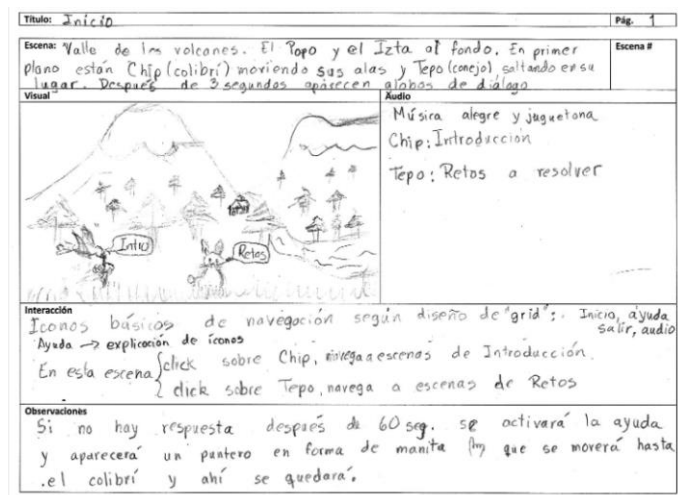 Título: Inicio
Pág. 1
Escena: Valle de los volcanes. El Popo y el Izta al fondo. En primer
plano están Chip (colibrí) moviendo sus alas y Tepo (conejo) saltando en su
lugar. Después de 3 segundos aparecen globos de diálogo
Escena #
Visual
Intro
Retos
Audio
Música alegre y juguetona
Chip: Introducción
Tepo: Retos a resolver
Interacción
Iconos básicos de navegación según diseño de "grid": Inicio, ayuda
salir, audio
Ayuda → explicación de íconos
En esta escena { click sobre Chip, navega a escenas de Introducción.
click sobre Tepo, navega a escenas de Retos
Observaciones
Si no hay respuesta después de 60 seg. se activará la ayuda
y aparecerá un puntero en forma de manita que se moverá hasta
el colibrí y ahí se quedará.